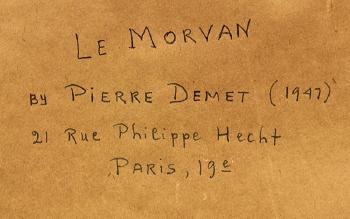 LE MORVAN
BY PIERRE DEMET (1947)
21 Rue Philippe Hecht
PARIS, 19e